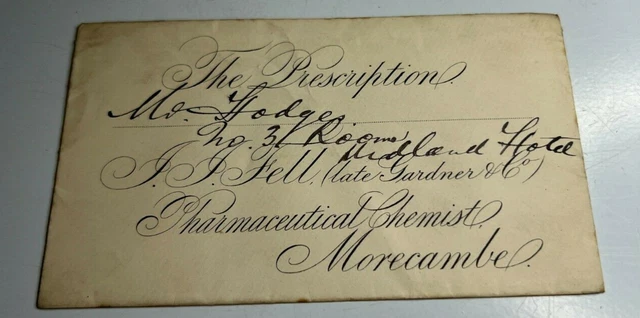 The Prescription.
Mr. Hodge
No. 31 Room
Midland Hotel
J. J. Fell, (late Gardner & Co)
Pharmaceutical Chemist,
Morecambe.